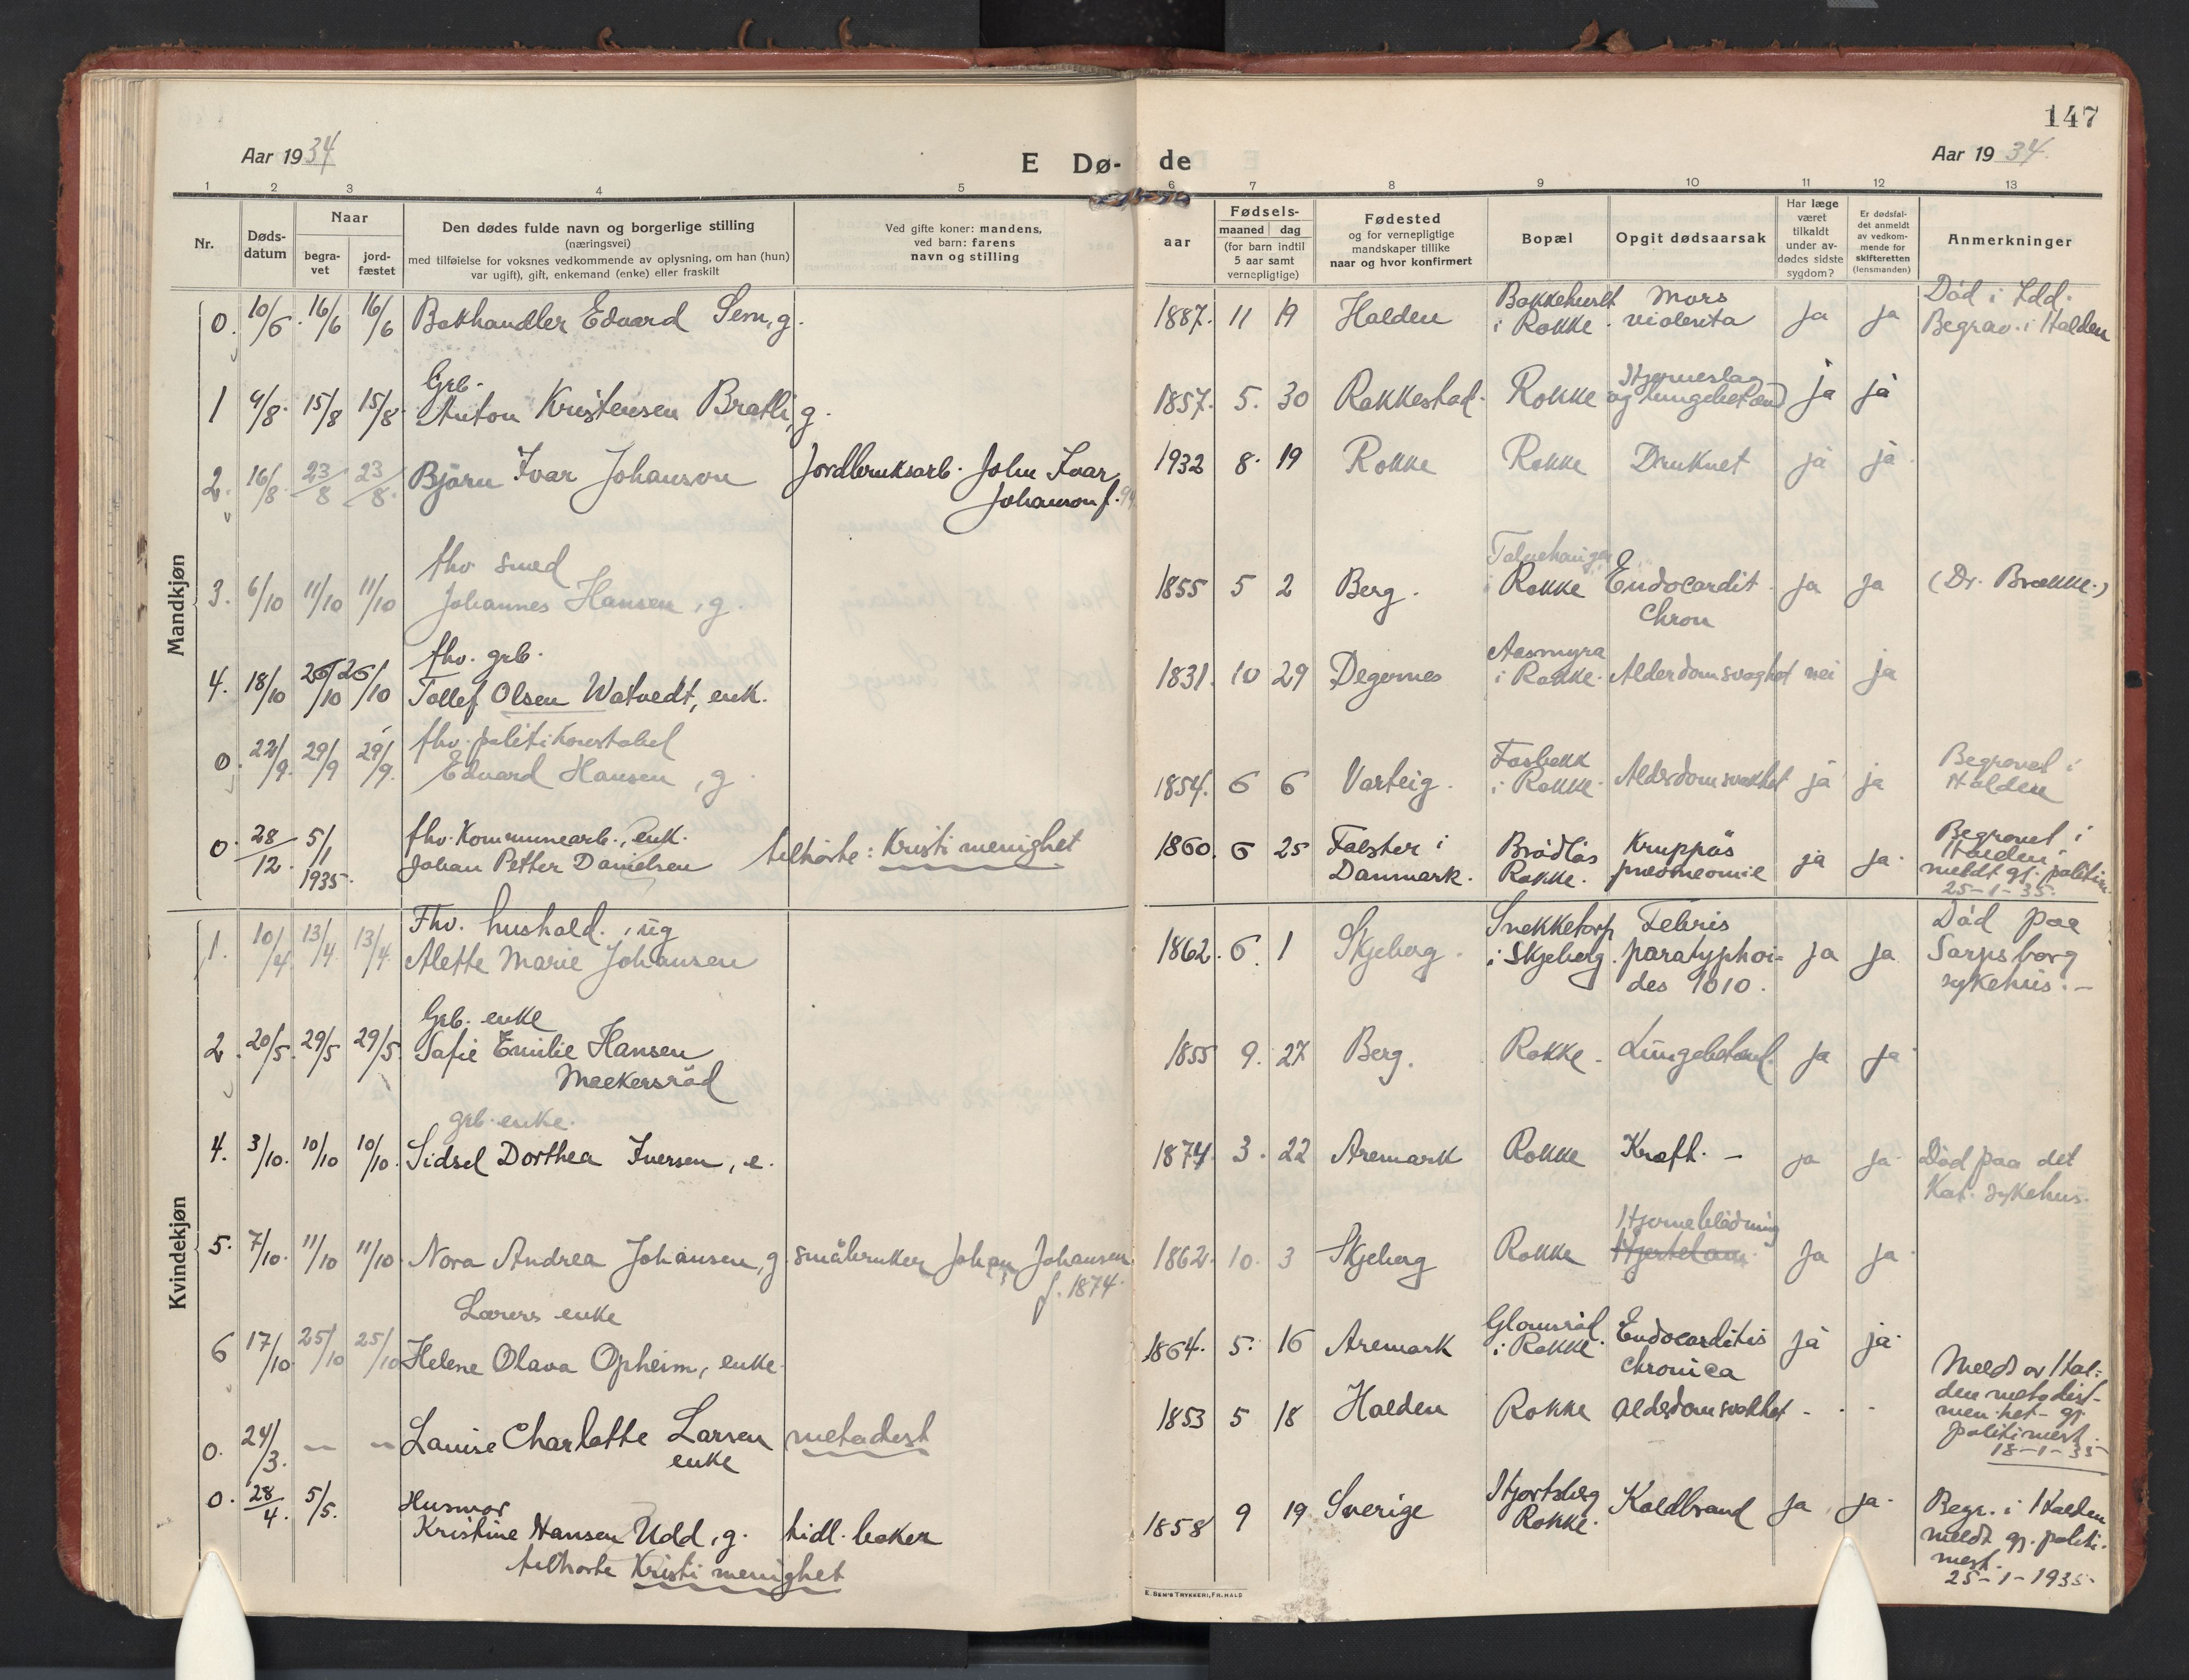 147
Aar 1934
E Dø- de
Aar 1934.
1 2 3 4 5 6 7 8 9 10 11 12 13
Nr.
Døds-
datum
Naar
begra-
vet
jord-
fæstet
Den dødes fulde navn og borgerlige stilling
(næringsvei)
med tilføielse for voksnes vedkommende av oplysning, om han (hun)
var ugift), gift, enkemand (enke) eller fraskilt
Ved gifte koner: mandens,
ved barn: farens
navn og stilling
aar
Fødsels-
maaned dag
(for barn indtil
5 aar samt
vernepligtige)
Fødested
og for vernepligtige
mandskaper tillike
naar og hvor konfirmert
Bopæl
Opgit dødsaarsak
Har læge
været
tilkaldt
under av-
dødes sidste
sygdom?
Er dødsfal-
det anmeldt
av vedkom-
mende for
skifteretten
(lensmanden)
Anmerkninger
Mandkjøn
0. 10/6 16/6 16/6 Bokhandler Edvard Sem, g.
1887. 11 19 Halden
i Rokke.
Mors
violenta
ja ja
Død i Idd.
Begrav. i Halden
Grb.
1 9/8. 15/8 15/8. Anton Kristensen Bratli, g.
1857. 5. 30 Rakkestad. Rokke
Hjerneslag
og lungebetænd
ja ja
2. 16/8. 23/8 23/8. Bjørn Ivar Johanson
Jordbruksarb. John Ivar
Johanson f.
1932 8. 19 Rokke Rokke Druknet ja ja.
fhv smed
3. 6/10 11/10 11/10 Johannes Hansen, g.
1855 5 2 Berg.
i Rokke
Endocardit.
Chron
ja ja
(Dr. Brække.)
fhv. grb.
4. 18/10 26/10 26/10 Tollef Olsen Watvedt, enk.
1831. 10 29 Degernes
Aasmyra
i Rokke.
Alderdomsvaghet nei ja
fhv. politikonstabel
0. 22/9. 29/9 29/9. Edvard Hansen, g.
1854. 6 6 Varteig.
Fosbekk
i Rokke.
Alderdomsvakhet ja ja
Begravet i
Halden
fhv. Kommunearb., enk.
0. 28/12. 5/1 1935. Johan Petter Danielsen
tilhørte: Kristi menighet
1860. 6 25 Falster i
Danmark.
Brødløs
Rokke.
Kruppøs
pneomeomie
ja ja.
Begravet i
Halden.
meldt gj. politim.
25-1-35.
Kvindekjøn
Fhv. hushold., ug
1. 10/4 13/4. 13/4. Alette Marie Johansen
1862. 6. 1 Skjeberg.
Snekketorp
i Skjeberg.
Febris
paratyphoi-
des 1010.
ja ja
Død paa
Sarpsborg
sykehus. -
Grb. enke
2. 20/5. 29/5 29/5. Sofie Emilie Hansen
Mækersrød
1855 9. 27 Berg. Rokke. Lungebetend. ja ja.
grb. enke.
4. 3/10. 10/10 10/10. Sidsel Dorthea Iversen, e.
1874. 3. 22 Aremark Rokke Kræft. - ja ja.
Død paa det
Kat. sykehus.
5. 7/10. 11/10 11/10. Nora Andrea Johansen, g. småbruker Johan Johansen
f. 1874.
1862. 10. 3 Skjeberg Rokke
Hjerneblødning
ja ja.
Lærers enke
6 17/10. 25/10 25/10 Helene Olava Opheim, enke.
1864. 5. 16 Aremark
Glomsrød
i Rokke.
Endocarditis
chronica
ja ja.
0. 24/3. - - Lanise Charlotte Larsen
enke
metodist
1853 5 18 Halden Rokke alderdomsvakhet - - -
Meldt av Hal-
den metodist-
men.het- gj.
politimest.
18-1-35
Husmor
0. 28/4. 5/5. Kristine Hansen Udd, g. tidl. baker
tilhørte Kristi menighet
1858 9 19 Sverige
Hjortsberg
Rokke.
Koldbrand ja ja.
Begr. i Halden
meldt gj. politi-
mest.
25-1-1935
E. SEM'S TRYKKERI, FR.HALD